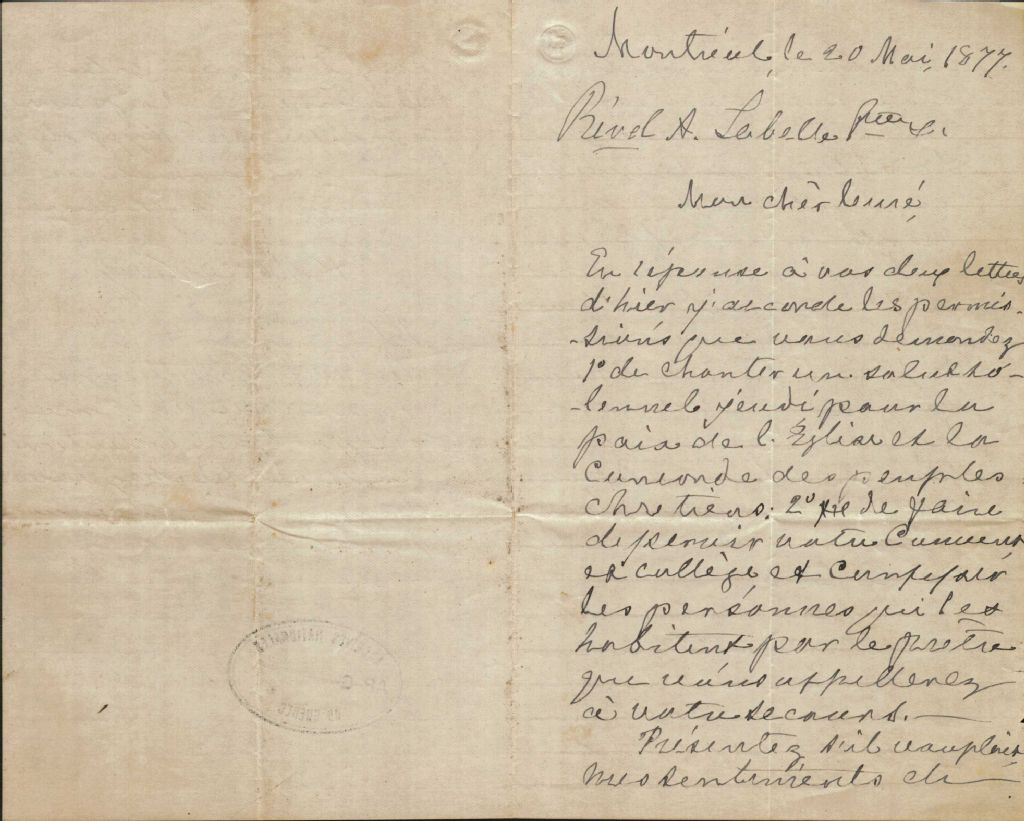 Montréal, le 20 Mai, 1877.
Révd A. Labelle Ptre &.
Mon chèr Curé,
En réponse à vos deux lettres
d'hier j'accorde les permis-
-sions que vous demandez
1º de chanter un salut so-
-lennel jeudi pour la
paix de l'Église et la
Concorde des peuples
Chrétiens; 2º de faire
desservir votre Couvent
et collège et
les personnes qui les
habitent par le prêtre
que vous appellerez
à votre secours. —
Présentez s'il vous plait
mes sentiments de